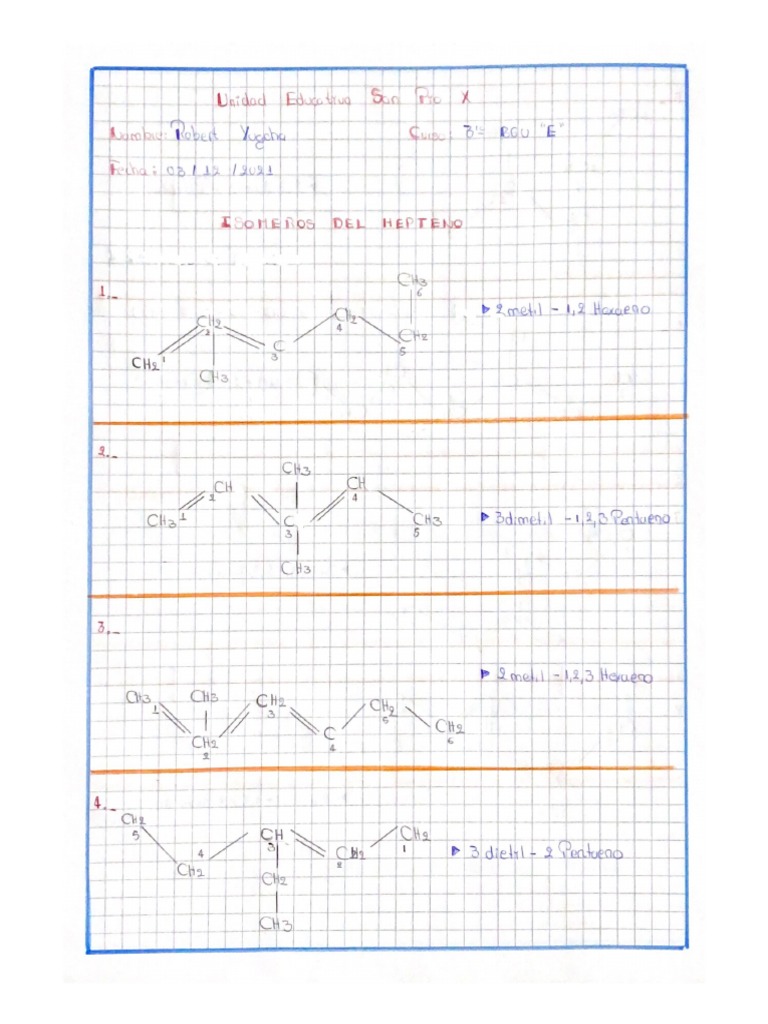 Unidad Educativa San Pio X
Nombre: Robert Yugcha Curso: 3ro BGU "E"
Fecha: 03/12/2021
ISOMEROS DEL HEPTENO
1._
CH3
6
CH2
2
CH2
4
CH2
5
C
3
CH2 1
CH3
▶ 2 metil - 1,2 Hexaeno
2._
CH3
CH
2
CH
4
CH3 1
C
3
CH3
5
CH3
▶ 3 dimetil - 1,2,3 Pentueno
3._
▶ 2 metil - 1,2,3 Hexaeno
CH3
1
CH3
CH2
3
CH2
5
CH2
2
C
4
CH2
6
4._
CH2
5
CH
3
CH2
1
4
CH2
CH2
2
CH2
CH3
▶ 3 dietil - 2 Pentueno